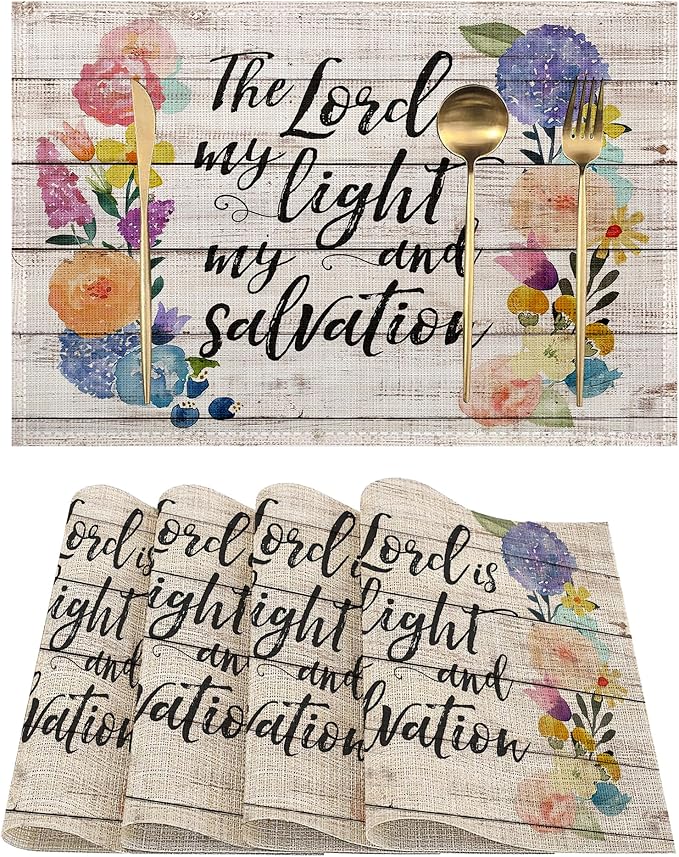 The Lord
my light
my and
salvation
Lord is
light
and
vation
Lord
ight
an
vatio
Lord
light
and
vation
Lord is
light
and
lvation